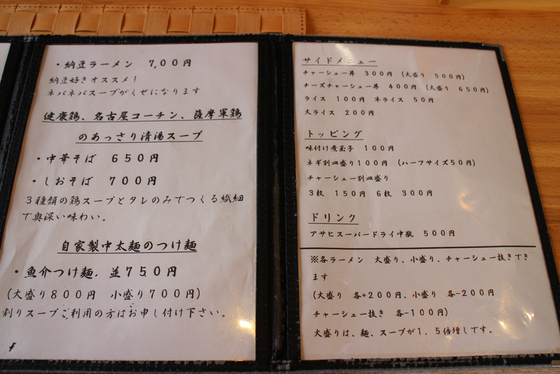 ・納豆ラーメン　７,００円
納豆好きオススメ！
ネバネバスープがくせになります
健康鶏、名古屋コーチン、薩摩軍鶏
のあっさり清湯スープ
・中華そば　６５０円
・しおそば　７００円
３種類の鶏スープとタレのみでつくる繊細
で奥深い味わい。
自家製中太麺のつけ麺
・魚介つけ麺．並７５０円
（大盛り８００円　小盛り７００円）
割りスープご利用の方はお申し付け下さい。
サイドメニュー
チャーシュー丼　３００円　（大盛り　５００円）
チーズチャーシュー丼　４００円　（大盛り　６５０円）
ライス　１００円　半ライス　５０円
大ライス　２００円
トッピング
味付け煮玉子　１００円
ネギ別皿盛り１００円　（ハーフサイズ５０円）
チャーシュー別皿盛り
３枚　１５０円　６枚　３００円
ドリンク
アサヒスーパードライ中瓶　５００円
※各ラーメン　大盛り、小盛り、チャーシュー抜きでき
ます
（大盛り　各＋２００円、小盛り　各－２００円
チャーシュー抜き　各－１００円）
大盛りは、麺、スープが１．５倍増しです。